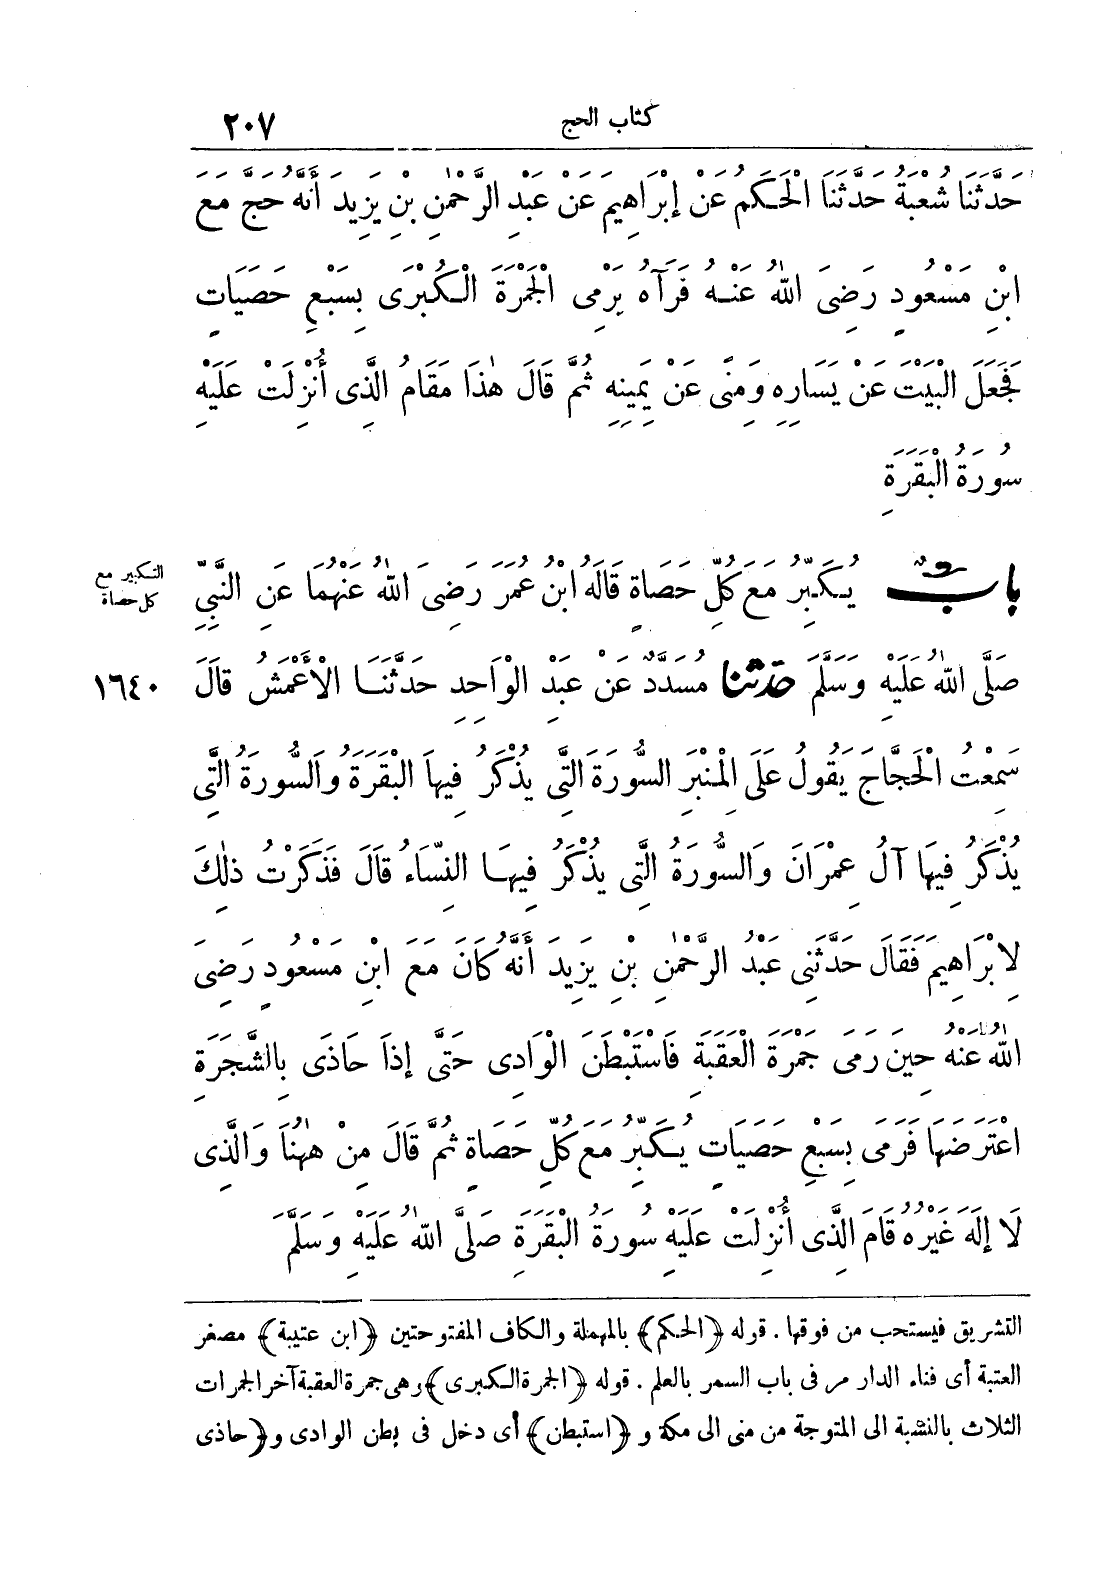 كتاب الحج ٢٠٧
حَدَّثَنَا شُعْبَةُ حَدَّثَنَا الْحَكَمُ عَنْ إِبْرَاهِيمَ عَنْ عَبْدِ الرَّحْمٰنِ بْنِ يَزِيدَ أَنَّهُ حَجَّ مَعَ
ابْنِ مَسْعُودٍ رَضِيَ اللّٰهُ عَنْهُ فَرَآهُ يَرْمِى الْجَمْرَةَ الْكُبْرَى بِسَبْعِ حَصَيَاتٍ
فَجَعَلَ الْبَيْتَ عَنْ يَسَارِهِ وَمِنًى عَنْ يَمِينِهِ ثُمَّ قَالَ هٰذَا مَقَامُ الَّذِى أُنْزِلَتْ عَلَيْهِ
سُورَةُ الْبَقَرَةِ
بابٌ يُكَبِّرُ مَعَ كُلِّ حَصَاةٍ قَالَهُ ابْنُ عُمَرَ رَضِيَ اللّٰهُ عَنْهُمَا عَنِ النَّبِيِّ
التكبير مع
كل حصاة
صَلَّى اللّٰهُ عَلَيْهِ وَسَلَّمَ حَدَّثَنَا مُسَدَّدٌ عَنْ عَبْدِ الْوَاحِدِ حَدَّثَنَا الْأَعْمَشُ قَالَ ١٦٤٠
سَمِعْتُ الْحَجَّاجَ يَقُولُ عَلَى الْمِنْبَرِ السُّورَةَ الَّتِى يُذْكَرُ فِيهَا الْبَقَرَةُ وَالسُّورَةُ الَّتِى
يُذْكَرُ فِيهَا آلُ عِمْرَانَ وَالسُّورَةُ الَّتِى يُذْكَرُ فِيهَا النِّسَاءُ قَالَ فَذَكَرْتُ ذٰلِكَ
لِإِبْرَاهِيمَ فَقَالَ حَدَّثَنِى عَبْدُ الرَّحْمٰنِ بْنِ يَزِيدَ أَنَّهُ كَانَ مَعَ ابْنِ مَسْعُودٍ رَضِيَ
اللّٰهُ عَنْهُ حِينَ رَمَى جَمْرَةَ الْعَقَبَةِ فَاسْتَبْطَنَ الْوَادِى حَتَّى إِذَا حَاذَى بِالشَّجَرَةِ
اعْتَرَضَهَا فَرَمَى بِسَبْعِ حَصَيَاتٍ يُكَبِّرُ مَعَ كُلِّ حَصَاةٍ ثُمَّ قَالَ مِنْ هٰهُنَا وَالَّذِى
لَا إِلَهَ غَيْرُهُ قَامَ الَّذِى أُنْزِلَتْ عَلَيْهِ سُورَةُ الْبَقَرَةِ صَلَّى اللّٰهُ عَلَيْهِ وَسَلَّمَ
التشريق فيستحب من فوقها . قوله ﴿الحكم﴾ بالمهملة والكاف المفتوحتين ﴿ابن عتيبة﴾ مصغر
العتبة أى فناء الدار مر فى باب السمر بالعلم . قوله ﴿الجمرة الكبرى﴾ وهى جمرة العقبة آخر الجمرات
الثلاث بالنسبة الى المتوجة من منى الى مكة و ﴿استبطن﴾ أى دخل فى بطن الوادى و﴿حاذى